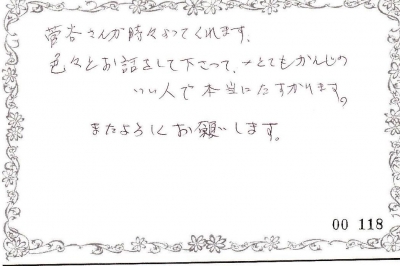 菅谷さんが時々よってくれます、
色々とお話をして下さって、とてもかんじの
いい人で本当にたすかります。
またよろしくお願いします。
00 118